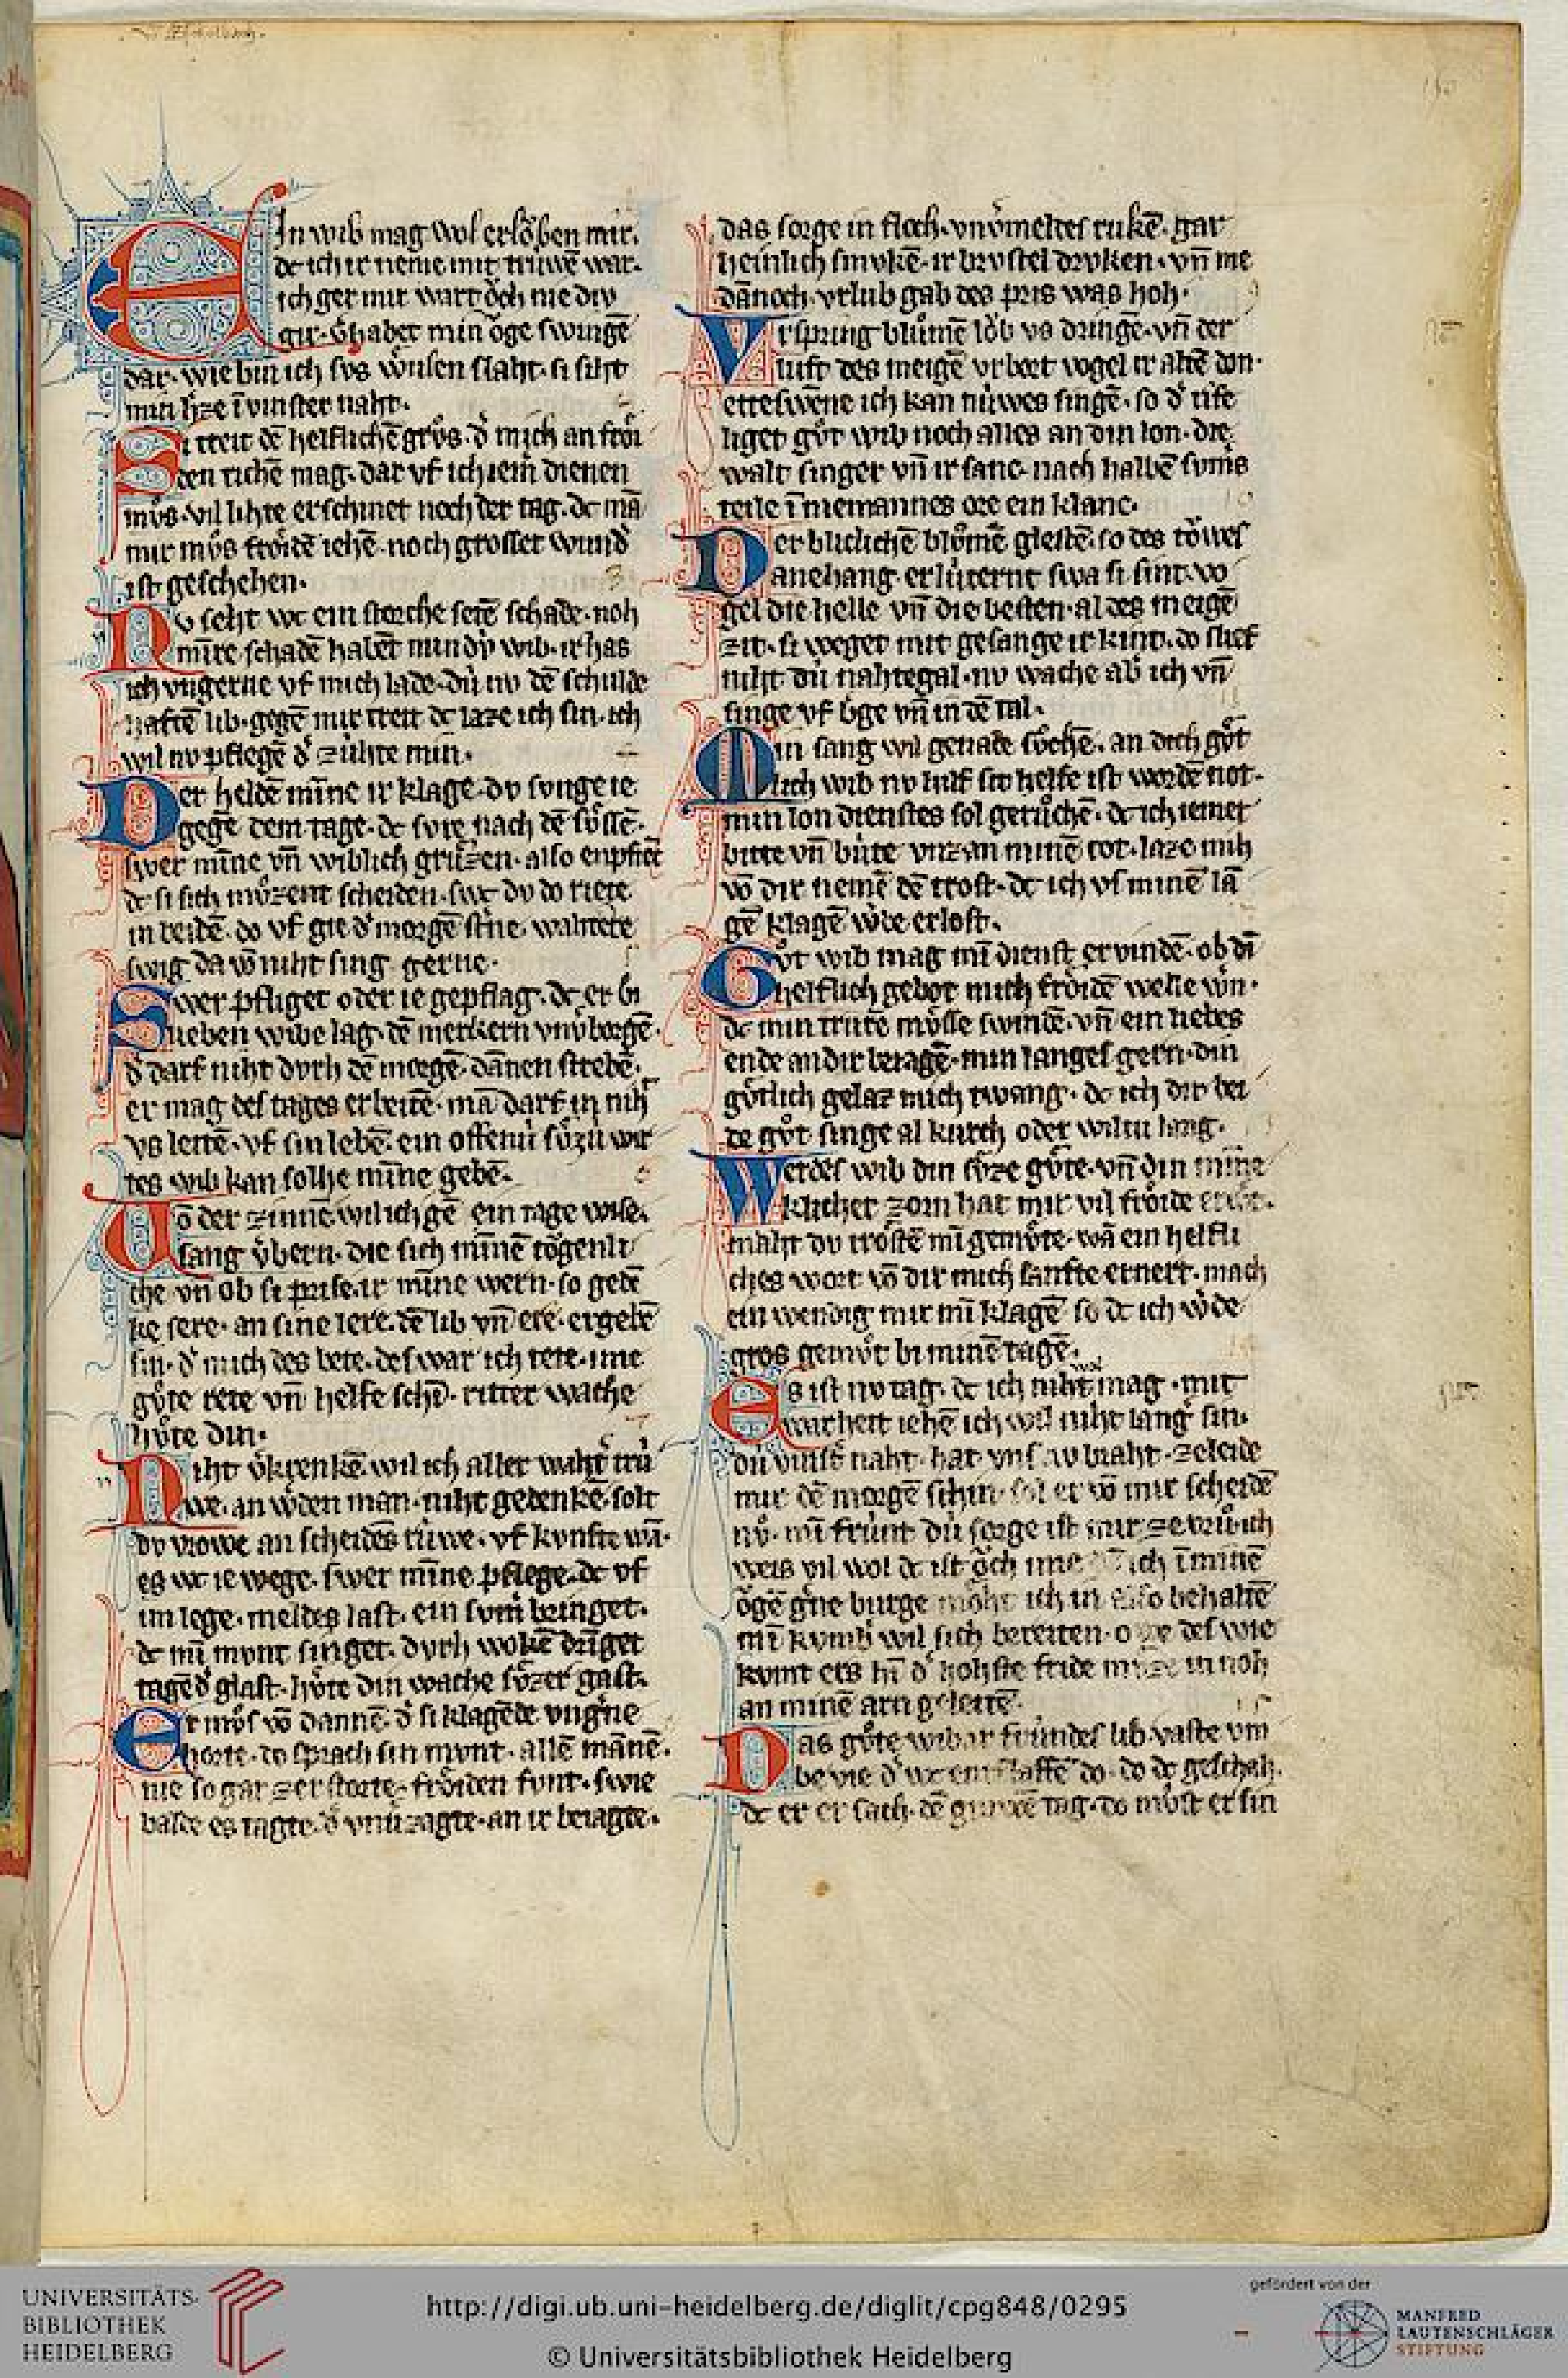 In wib mag wol erlǒben mir.
dc ich ir neme mit truwē war.
ich ger mir wart ǒch nie div
gir. v̓habet min ǒge swingē
dar. wie bin ich svs wv̓lsen slaht. si siht
min h̓ze ī vinster naht.
Si treit dē helflichē grv̊s. d̓ mich an frǒi
den richē mag. dar vf ich iem̓ dienen
mv̊s. vil lihte erschinet noch der tag. dc mā
mir mv̊s frǒidē iehē. noch grosser wund̓
ist geschehen.
Nv seht wc ein storche setē schade. noh
min̄re schadē habēt min dv̓ wib. ir has
ich vngerne vf mich lade. dv̓ nv dē schulde
haftē lib. gegē mir treit dc laze ich sin. ich
wil nv pflegē d̓ zv̓hte min.
Der heldē min̄e ir klage. dv svnge ie
gegē dem tage. dc svre nach dē sv̊ssē.
swer min̄e vn̄ wiblich grv̊zen. also enpfiēc
dc si sich mv̊zent scheiden. swc dv do riete
in beidē. do vf gie d̓ morgē st̓ne. wahtere
swig da vō niht sing gerne.
Swer pfliget oder ie gepflag. dc er bi
lieben wibe lag. dē merkern vnv̓borgē.
d̓ darf niht dvrh dē morgē. dānen strebē.
er mag des tages erbeitē. mā darf in niht
vs leitē. vf sin lebē. ein offenv̓ sv̊zv̓ wir
tes wib kan solhe min̄e gebē.
Vō der zinnē wil ich gē in tage wise.
sang v̓bern. die sich min̄ē tǒgenli
che vn̄ ob si prise. ir min̄e wern. so gedē
ke sere. an sine lere. dē lib vn̄ ere. ergebē
sin. d̓ mich des bete. deswar ich tete. ime
gv̊te rete vn̄ helfe schī. ritter wache
hv̊te din.
Niht v̓krenkē wil ich aller wahter trv̓
we. an w̓den man. niht gedenkē. solt
dv vrowe an scheidēs rv̓we. vf kvnfte wā.
es wc ie wege. swer min̄e pflege. dc vf
im lege. meldes last. ein svm̓ bringet.
dc mī mvnt singet. dvrh wolkē dringet
tagēd̓ glast. hv̊te din wache sv̊zer gast.
Er mv̊s vō dannē. d̓ si klagēde vng̓ne
horte. do sprach sin mvnt. allē mānē.
nie so gar zerstorte. frǒiden fvnt. swie
balde es tagte. d̓ vnv̓zagte. an ir beiagte.
das sorge in floch. vnv̓meldes rukē. gar
heinlich smvkē. ir brvstel drvken. vn̄ me
dānoch. vrlub gab des pris was hoh.
Vrspring blǔmē lǒb vs dringē. vn̄ der
luft des meigē vrbort vogel ir altē don.
etteswēne ich kan nv̓wes singē. so d̓ rife
liget gv̊t wib noch alles an din lon. die
walt singer vn̄ ir sanc. nach halbē svm̓s
teile ī niemannes ore ein klanc.
Der bliclichē blǔmē glestē. so des tǒwes
anehang. erlv̓ternt swa si sint. vo
gel die helle vn̄ die besten. al des meigē
zit. si weget mit gesange ir kint. do slief
niht dv̓ nahtegal. nv wache ab̓ ich vn̄
singe vf b̓ge vn̄ in dē tal.
Min sang wil genade sv̊chē. an dich gv̊t
lich wib nv hilf sit helfe ist wordē not.
min lon dienstes sol gerǔchē. dc ich iemer
bitte vn̄ bv̓te vnz an minē tot. laze mih
vō dir nemē dē trost. dc ich vs minē lā
gē klagē w̓de erlost.
Gv̊t wib mag mī dienst er vindē. ob dī
helflich gebot mich frǒidē welle w̓n.
dc min trurē mv̊sse swindē. vn̄ ein liebes
ende an dir beiagē. min langes gern. din
gv̊tlich gelaz mich twang. dc ich dir bei
de gv̊t singe al kurch oder wiltu lang.
Werdes wib din sv̊ze gv̊te. vn̄ din min̄e
klicher zorn hat mir vil frǒide erw̓t.
maht dv trǒstē mī gemv̊te. wā ein helfli
ches wort vō dir mich sanfte ernert. mach
ein wendig mir mī klagē so dc ich w̓de
gros gemv̊t bi minē tagē.
Es ist nv tag. dc ich niht wol mag. mit
warheit iehē ich wil niht lang̓ sin.
dv̓ vinst̓ naht. hat vns nv braht. ze leide
mir dē morgē schin. sol er vō mir scheidē
nv. mī frūnt dv̓ sorge ist mir ze vrv̊ ich
weis vil wol dc ist ǒch ime dē ich ī minē
ǒgē g̓ne burge mǒht ich in also behaltē
mī kvmb̓ wil sich breiten. owe des wie
kvmt ers hī d̓ hohste fride mv̊ze in noh
an minē arn geleitē.
Das gv̊te wib ir frūndes lib. vaste vm
be vie d̓ wc entslaffē do. do dc geschah.
dc er er sach. dē grawē tag. do mv̊st er sin
UNIVERSITÄTS-
BIBLIOTHEK
HEIDELBERG
http://digi.ub.uni-heidelberg.de/diglit/cpg848/0295
© Universitätsbibliothek Heidelberg
gefördert von der
MANFRED
LAUTENSCHLÄGER
STIFTUNG